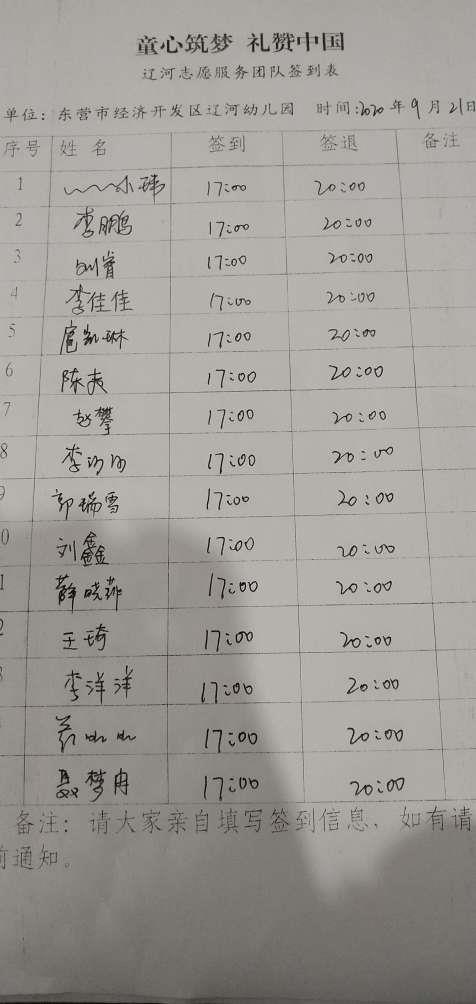 童心筑梦 礼赞中国
辽河志愿服务团队签到表
单位：东营市经济开发区辽河幼儿园 时间：2020年9月21日
序号 姓名 签到 签退 备注
1 17:00 20:00
2 李鹏 17:00 20:00
3 刘睿 17:00 20:00
4 李佳佳 17:00 20:00
5 扈凯琳 17:00 20:00
6 陈爽 17:00 20:00
7 赵攀 17:00 20:00
8 李 17:00 20:00
9 郭瑞雪 17:00 20:00
0 刘鑫 17:00 20:00
1 薛晓菲 17:00 20:00
2 王琦 17:00 20:00
3 李洋洋 17:00 20:00
17:00 20:00
聂梦冉 17:00 20:00
备注：请大家亲自填写签到信息，如有请
前通知。